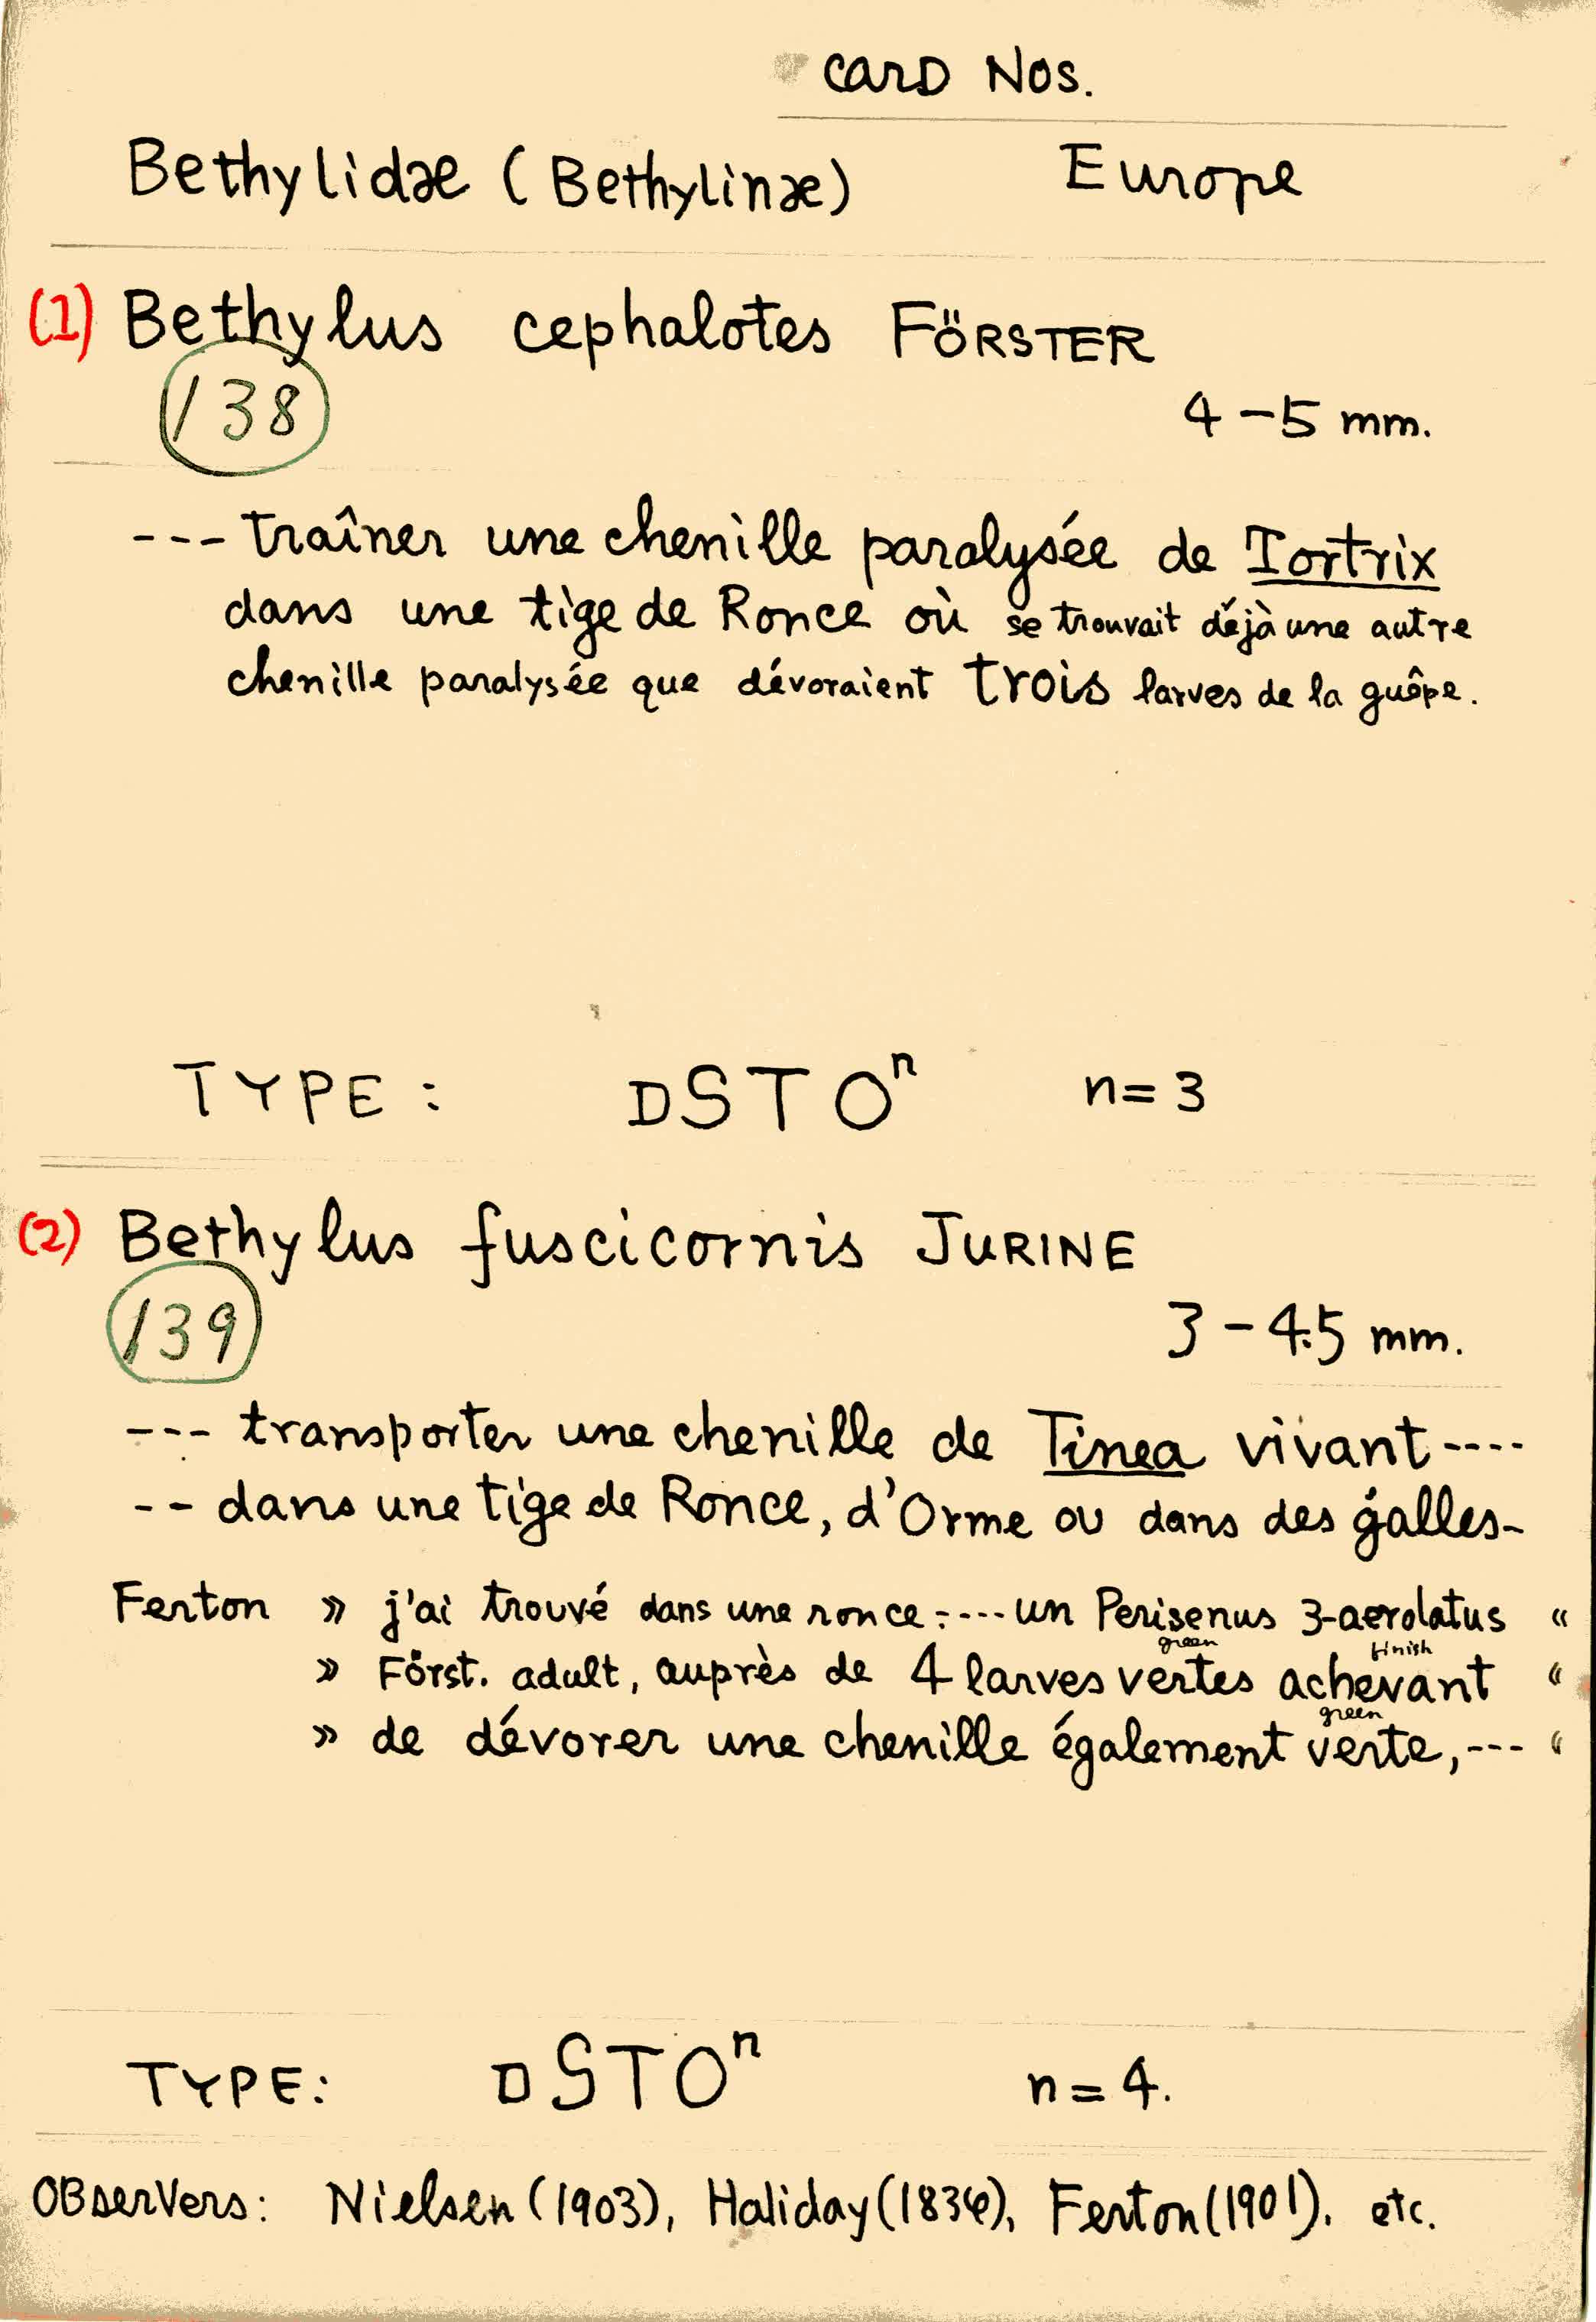 CARD Nos.
Bethylidæ (Bethylinæ) Europe
(1) Bethylus cephalotes FÖRSTER
138
4-5 mm.
--- traîner une chenille paralysée de Tortrix
dans une tige de Ronce où se trouvait déjà une autre
chenille paralysée que dévoraient trois larves de la guêpe.
TYPE: DSTOⁿ n=3
(2) Bethylus fuscicornis JURINE
139
3-4.5 mm.
--- transporter une chenille de Tinea vivant ----
-- dans une tige de Ronce, d'Orme ou dans des galles-
Ferton » j'ai trouvé dans une ronce ---- un Perisenus 3-aerolatus «
green finish
» Först. adult, auprès de 4 larves vertes achevant «
green
» de dévorer une chenille également verte, --- «
TYPE: DSTOⁿ n=4.
OBserVers: Nielsen (1903), Haliday (), Ferton (1901). etc.